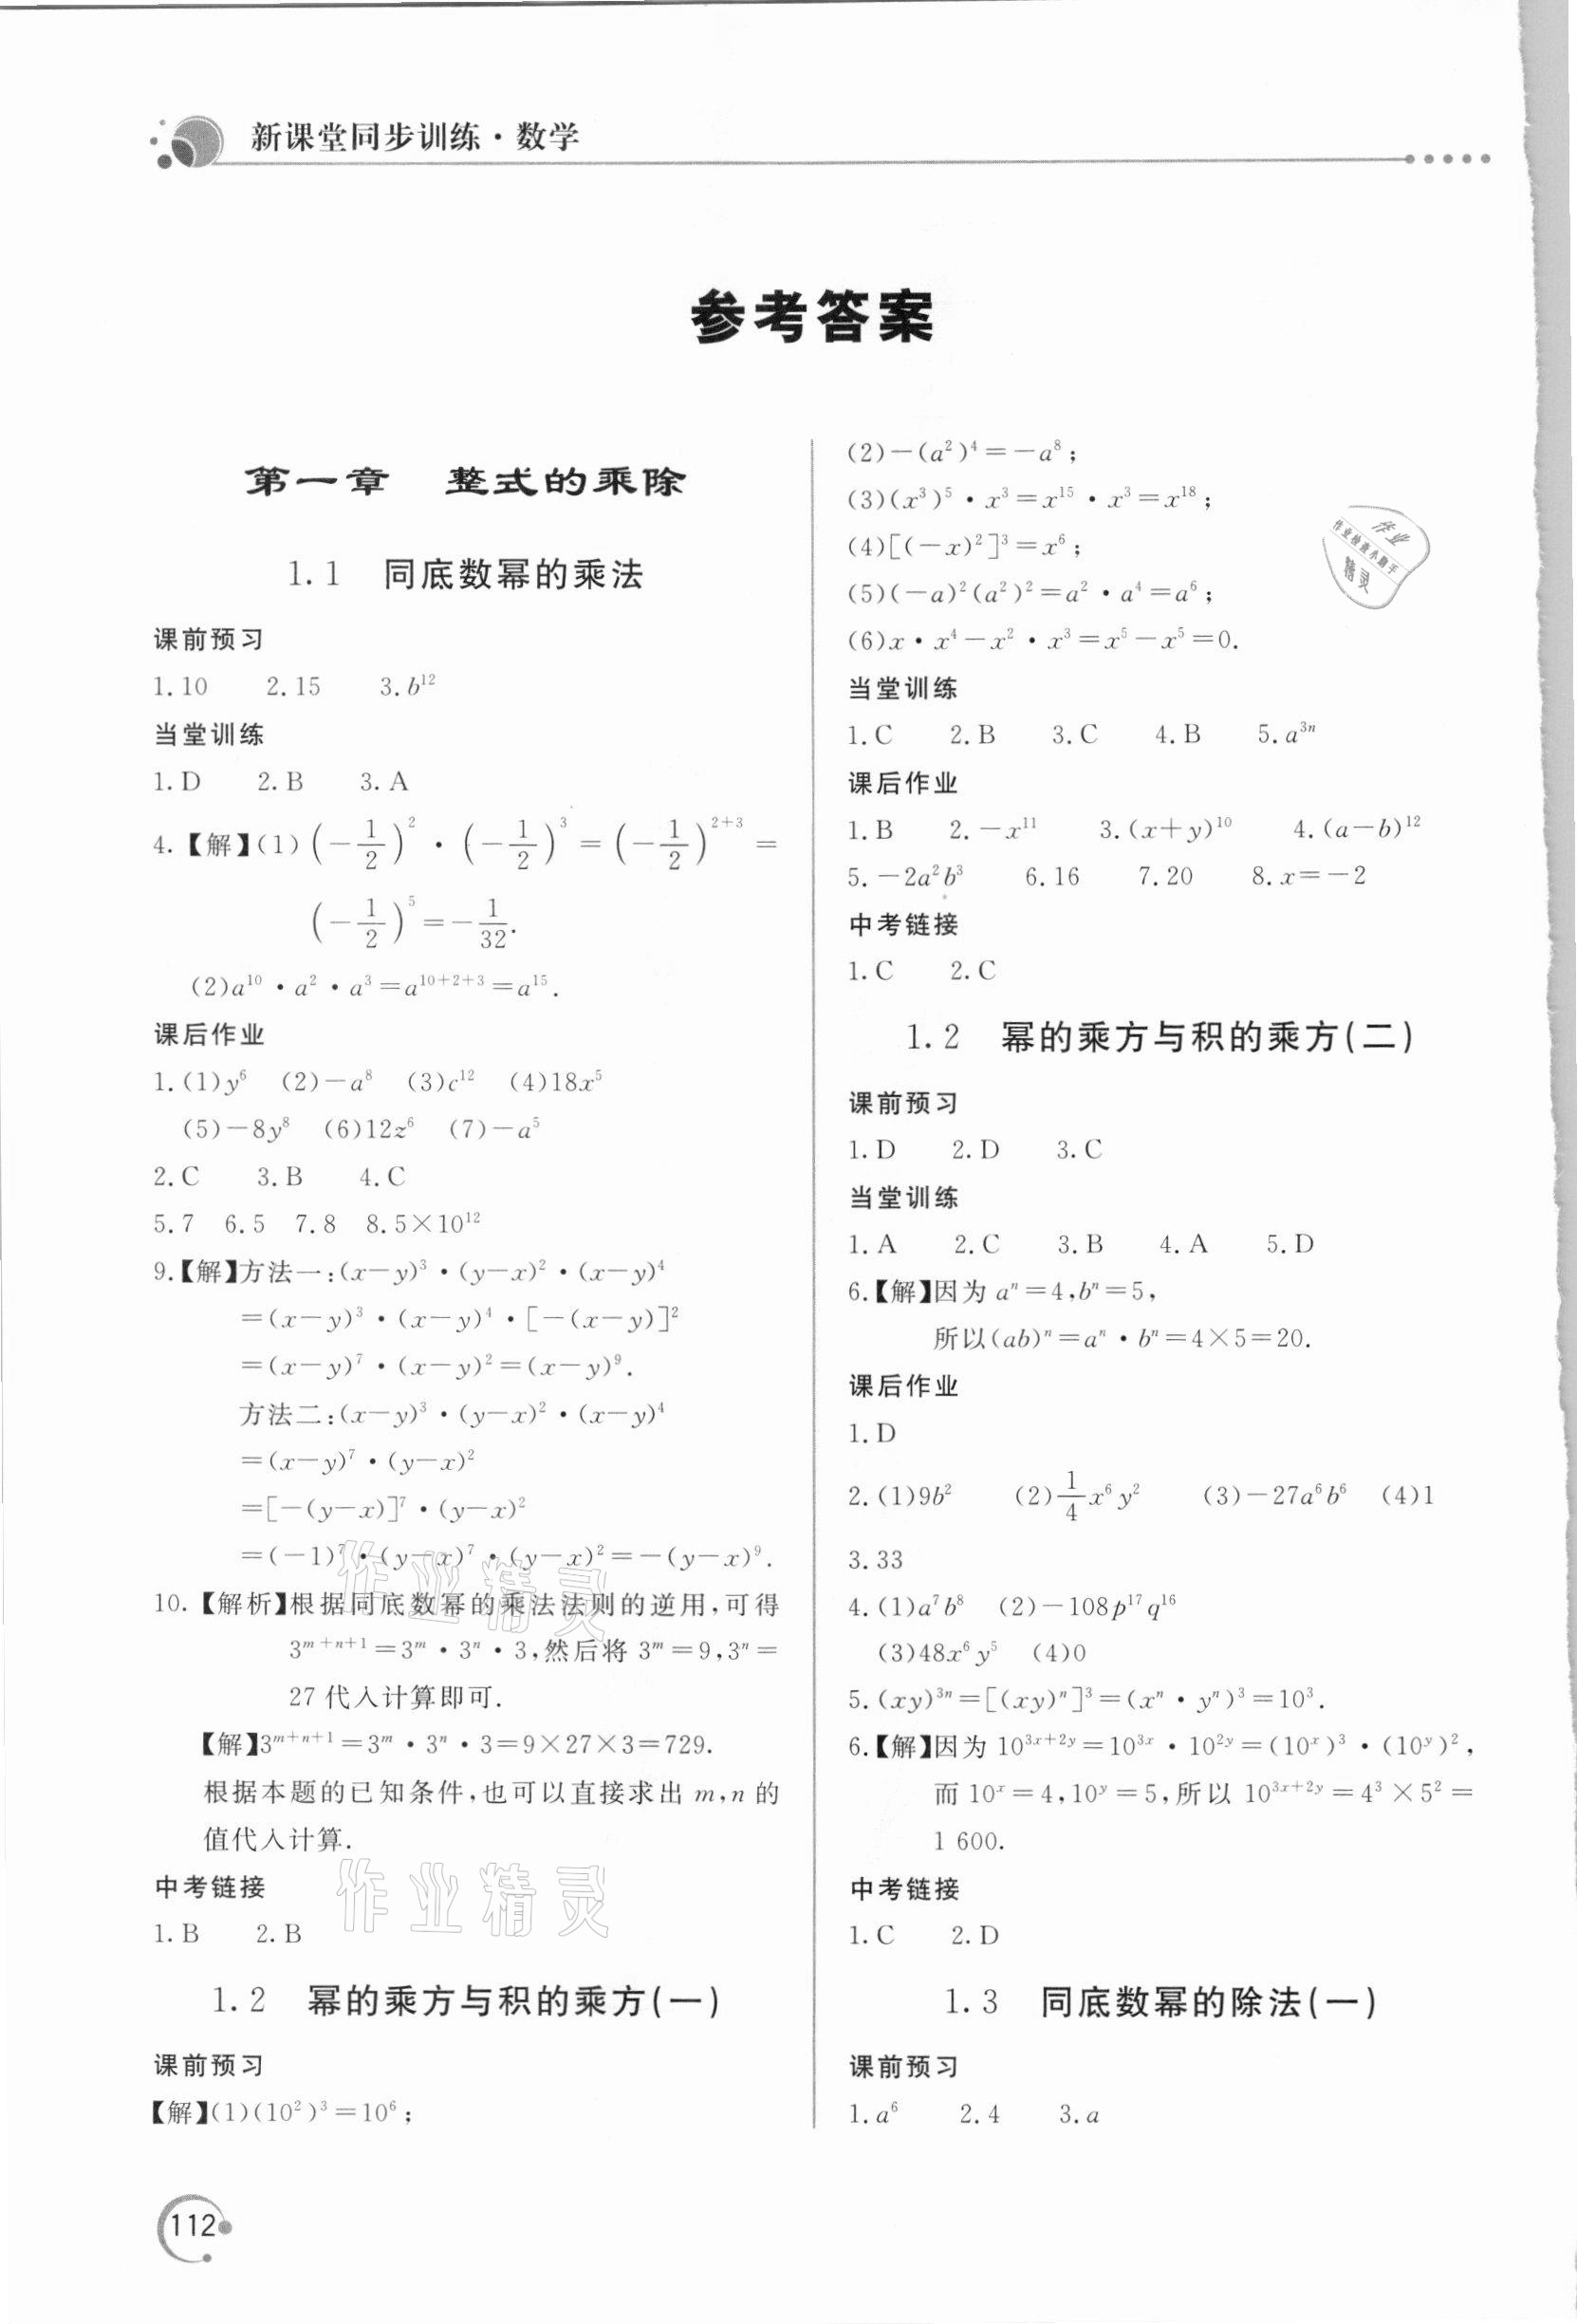 新课堂同步训练·数学
参考答案
第一章 整式的乘除
1.1 同底数幂的乘法
课前预习
1.10 2.15 3.b¹²
当堂训练
1.D 2.B 3.A
4.【解】(1)(-1/2)²·(-1/2)³=(-1/2)²⁺³=
(-1/2)⁵=-1/32.
(2)a¹⁰·a²·a³=a¹⁰⁺²⁺³=a¹⁵.
课后作业
1.(1)y⁶ (2)-a⁸ (3)c¹² (4)18x⁵
(5)-8y⁸ (6)12z⁶ (7)-a⁵
2.C 3.B 4.C
5.7 6.5 7.8 8.5×10¹²
9.【解】方法一:(x-y)³·(y-x)²·(x-y)⁴
=(x-y)³·(x-y)⁴·[-(x-y)]²
=(x-y)⁷·(x-y)²=(x-y)⁹.
方法二:(x-y)³·(y-x)²·(x-y)⁴
=(x-y)⁷·(y-x)²
=[-(y-x)]⁷·(y-x)²
=(-1)⁷·(y-x)⁷·(y-x)²=-(y-x)⁹.
10.【解析】根据同底数幂的乘法法则的逆用,可得
3ᵐ⁺ⁿ⁺¹=3ᵐ·3ⁿ·3,然后将3ᵐ=9,3ⁿ=
27代入计算即可.
【解】3ᵐ⁺ⁿ⁺¹=3ᵐ·3ⁿ·3=9×27×3=729.
根据本题的已知条件,也可以直接求出m,n的
值代入计算.
中考链接
1.B 2.B
1.2 幂的乘方与积的乘方(一)
课前预习
【解】(1)(10²)³=10⁶;
(2)-(a²)⁴=-a⁸;
(3)(x³)⁵·x³=x¹⁵·x³=x¹⁸;
(4)[(-x)²]³=x⁶;
(5)(-a)²(a²)²=a²·a⁴=a⁶;
(6)x·x⁴-x²·x³=x⁵-x⁵=0.
当堂训练
1.C 2.B 3.C 4.B 5.a³ⁿ
课后作业
1.B 2.-x¹¹ 3.(x+y)¹⁰ 4.(a-b)¹²
5.-2a²b³ 6.16 7.20 8.x=-2
中考链接
1.C 2.C
1.2 幂的乘方与积的乘方(二)
课前预习
1.D 2.D 3.C
当堂训练
1.A 2.C 3.B 4.A 5.D
6.【解】因为aⁿ=4,bⁿ=5,
所以(ab)ⁿ=aⁿ·bⁿ=4×5=20.
课后作业
1.D
2.(1)9b² (2)1/4x⁶y² (3)-27a⁶b⁶ (4)1
3.33
4.(1)a⁷b⁸ (2)-108p¹⁷q¹⁶
(3)48x⁶y⁵ (4)0
5.(xy)³ⁿ=[(xy)ⁿ]³=(xⁿ·yⁿ)³=10³.
6.【解】因为10³ˣ⁺²ʸ=10³ˣ·10²ʸ=(10ˣ)³·(10ʸ)²,
而10ˣ=4,10ʸ=5,所以10³ˣ⁺²ʸ=4³×5²=
1 600.
中考链接
1.C 2.D
1.3 同底数幂的除法(一)
课前预习
1.a⁶ 2.4 3.a
112
作业精灵
作业精灵
作业
作业检查小助手
精灵